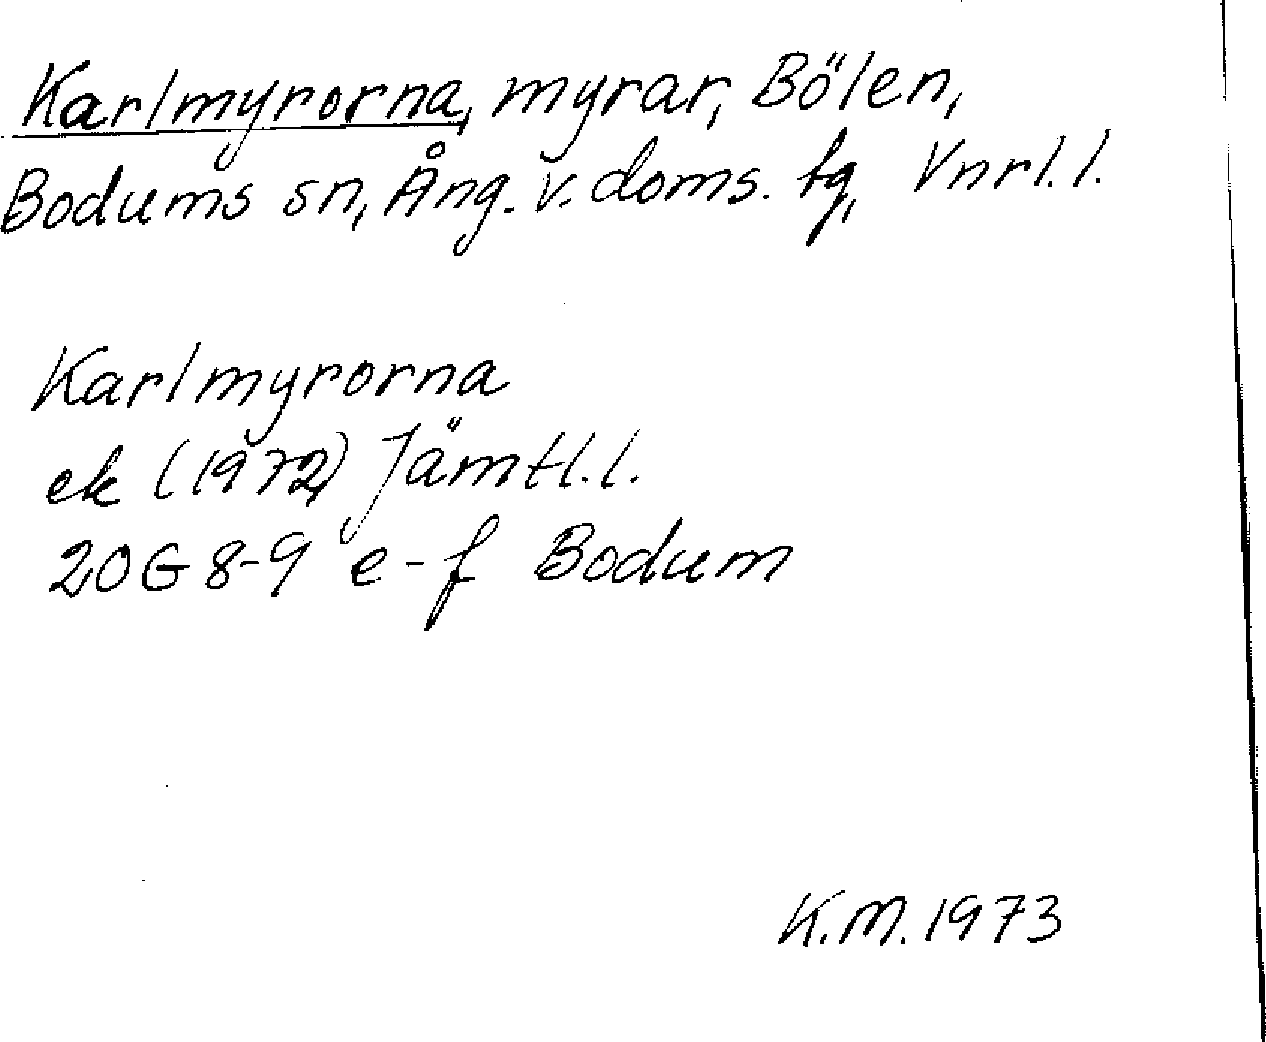 Karlmyrorna, myrar, Bölen,
Bodums sn, Ång. v. doms. tg, Vnrl. l.
Karlmyrorna
ek (1972) Jämtl. l.
20G 8-9 e-f Bodum
K.M. 1973